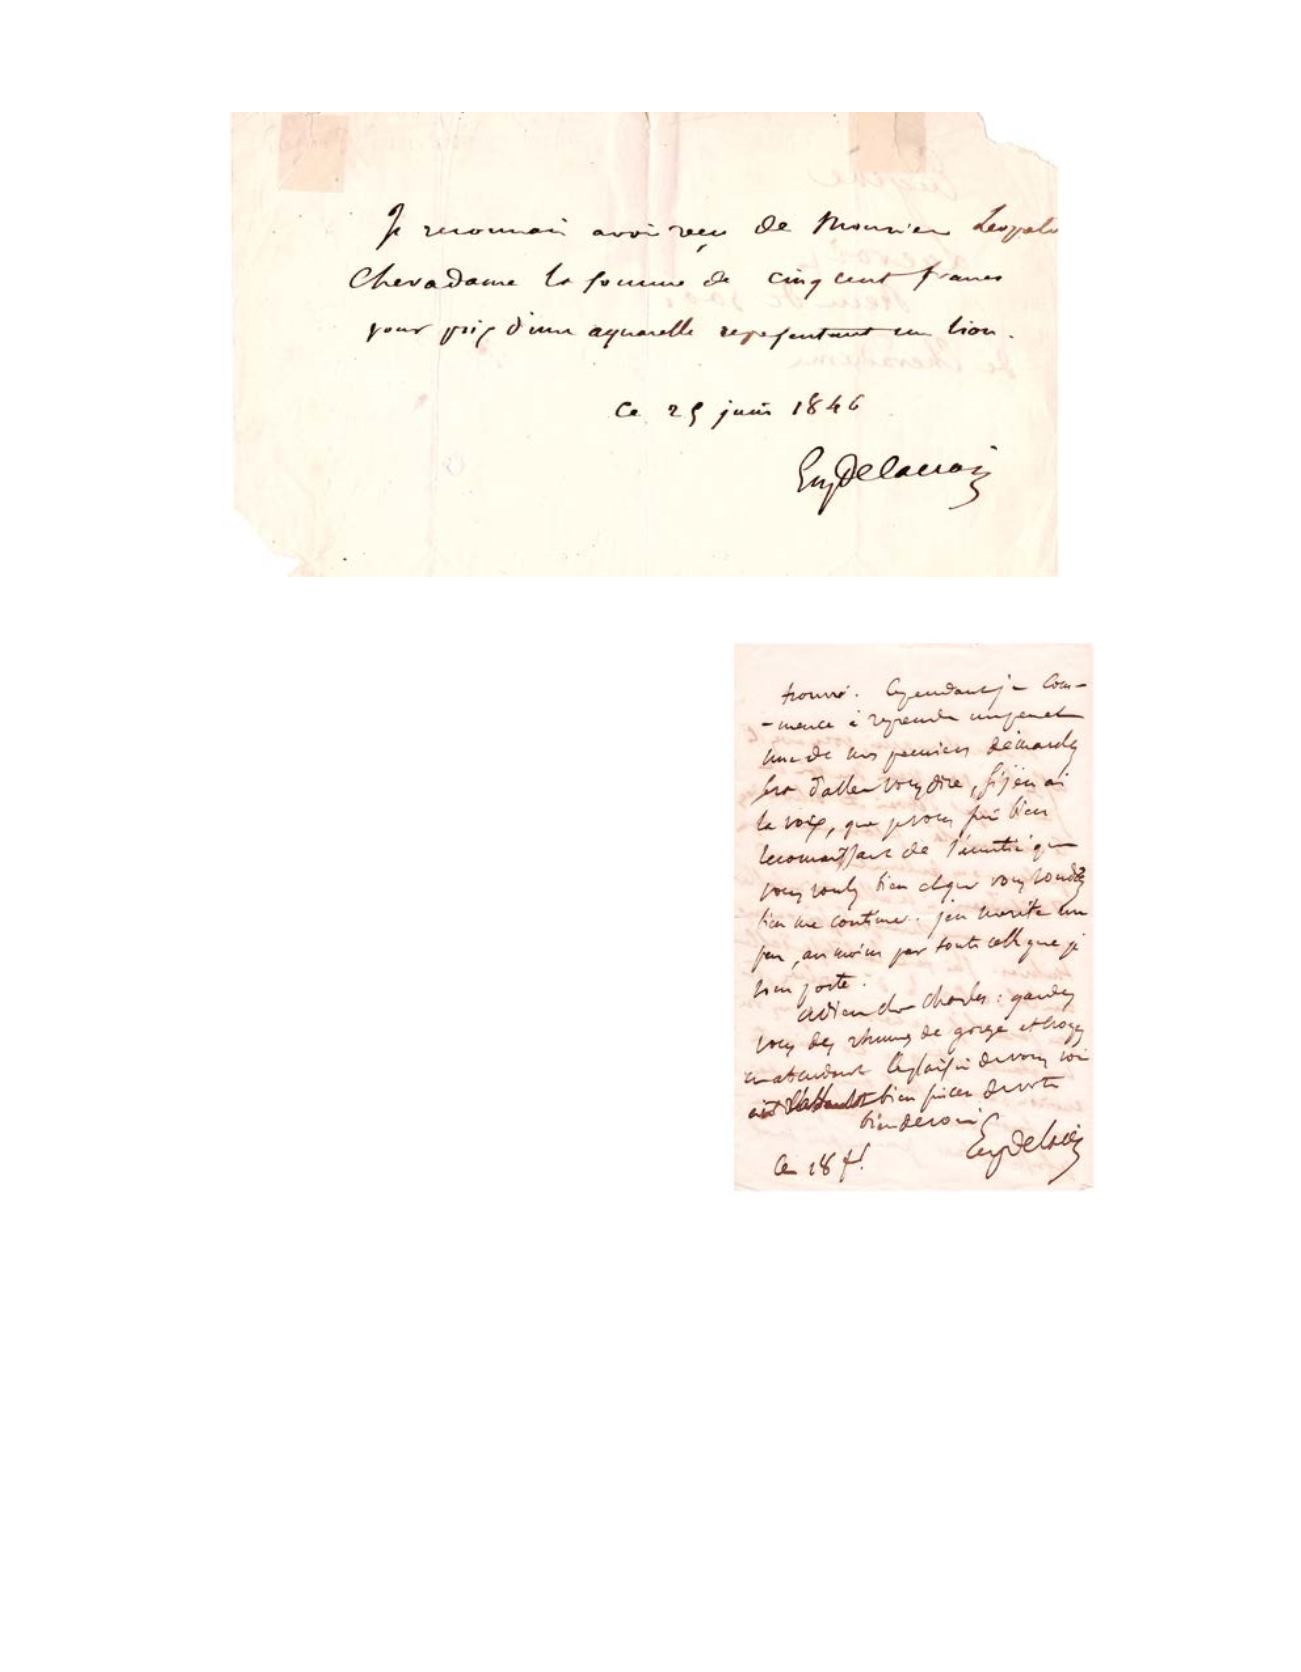 Je reconnais avoir reçu de Monsieur Leopold
Chevadame la somme de cinq cent francs
pour prix d'une aquarelle representant un lion.
Ce 25 juin 1846
Eug Delacroix
trouvé. Cependant je com-
-mence à reprendre un peu et
une de mes premieres démarches
sera d'aller vous dire, si j'en ai
la voix, que je vous suis bien
reconnaissant de l'amitié que
vous voulez bien et que vous voudrez
bien me continuer. j'en merite un
peu, au moins par toute celle que je
vous porte.
Adieu cher Charles : gardez
vous des rhumes de gorge et croyez
en attendant le plaisir de vous voir
bien sincere de votre
bien devoué
Eug Delacroix
Ce 18 f!